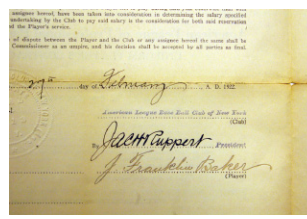 assignees hereof, have been taken into consideration in determining the salary specified
undertaking by the Club to pay said salary is the consideration for both said reservation
of the Player's service.
of dispute between the Player and the Club or any assignee hereof the same shall be
Commissioner as an umpire, and his decision shall be accepted by all parties as final.
day of February A. D. 1922.
American League Base Ball Club of New York
(Club)
By Jacob Ruppert President
J. Franklin Baker
(Player)